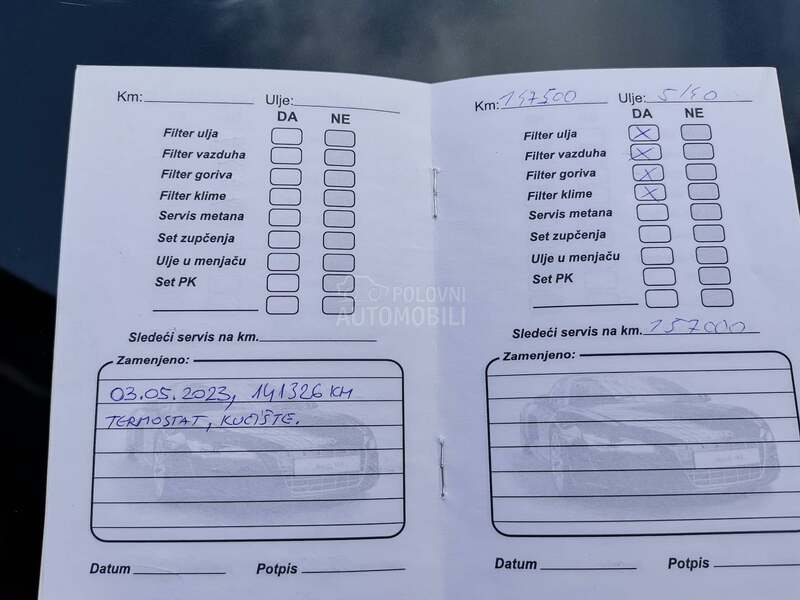 Km: Ulje:
DA NE
Filter ulja
Filter vazduha
Filter goriva
Filter klime
Servis metana
Set zupčenja
Ulje u menjaču
Set PK
Sledeći servis na km.
Zamenjeno:
03.05.2023, 141326 KM
TERMOSTAT, KUČIŠTE.
Datum Potpis
Km: 147500 Ulje: 5/40
DA NE
Filter ulja X
Filter vazduha X
Filter goriva X
Filter klime X
Servis metana
Set zupčenja
Ulje u menjaču
Set PK
Sledeći servis na km. 157000
Zamenjeno:
Datum Potpis
POLOVNI
AUTOMOBILI